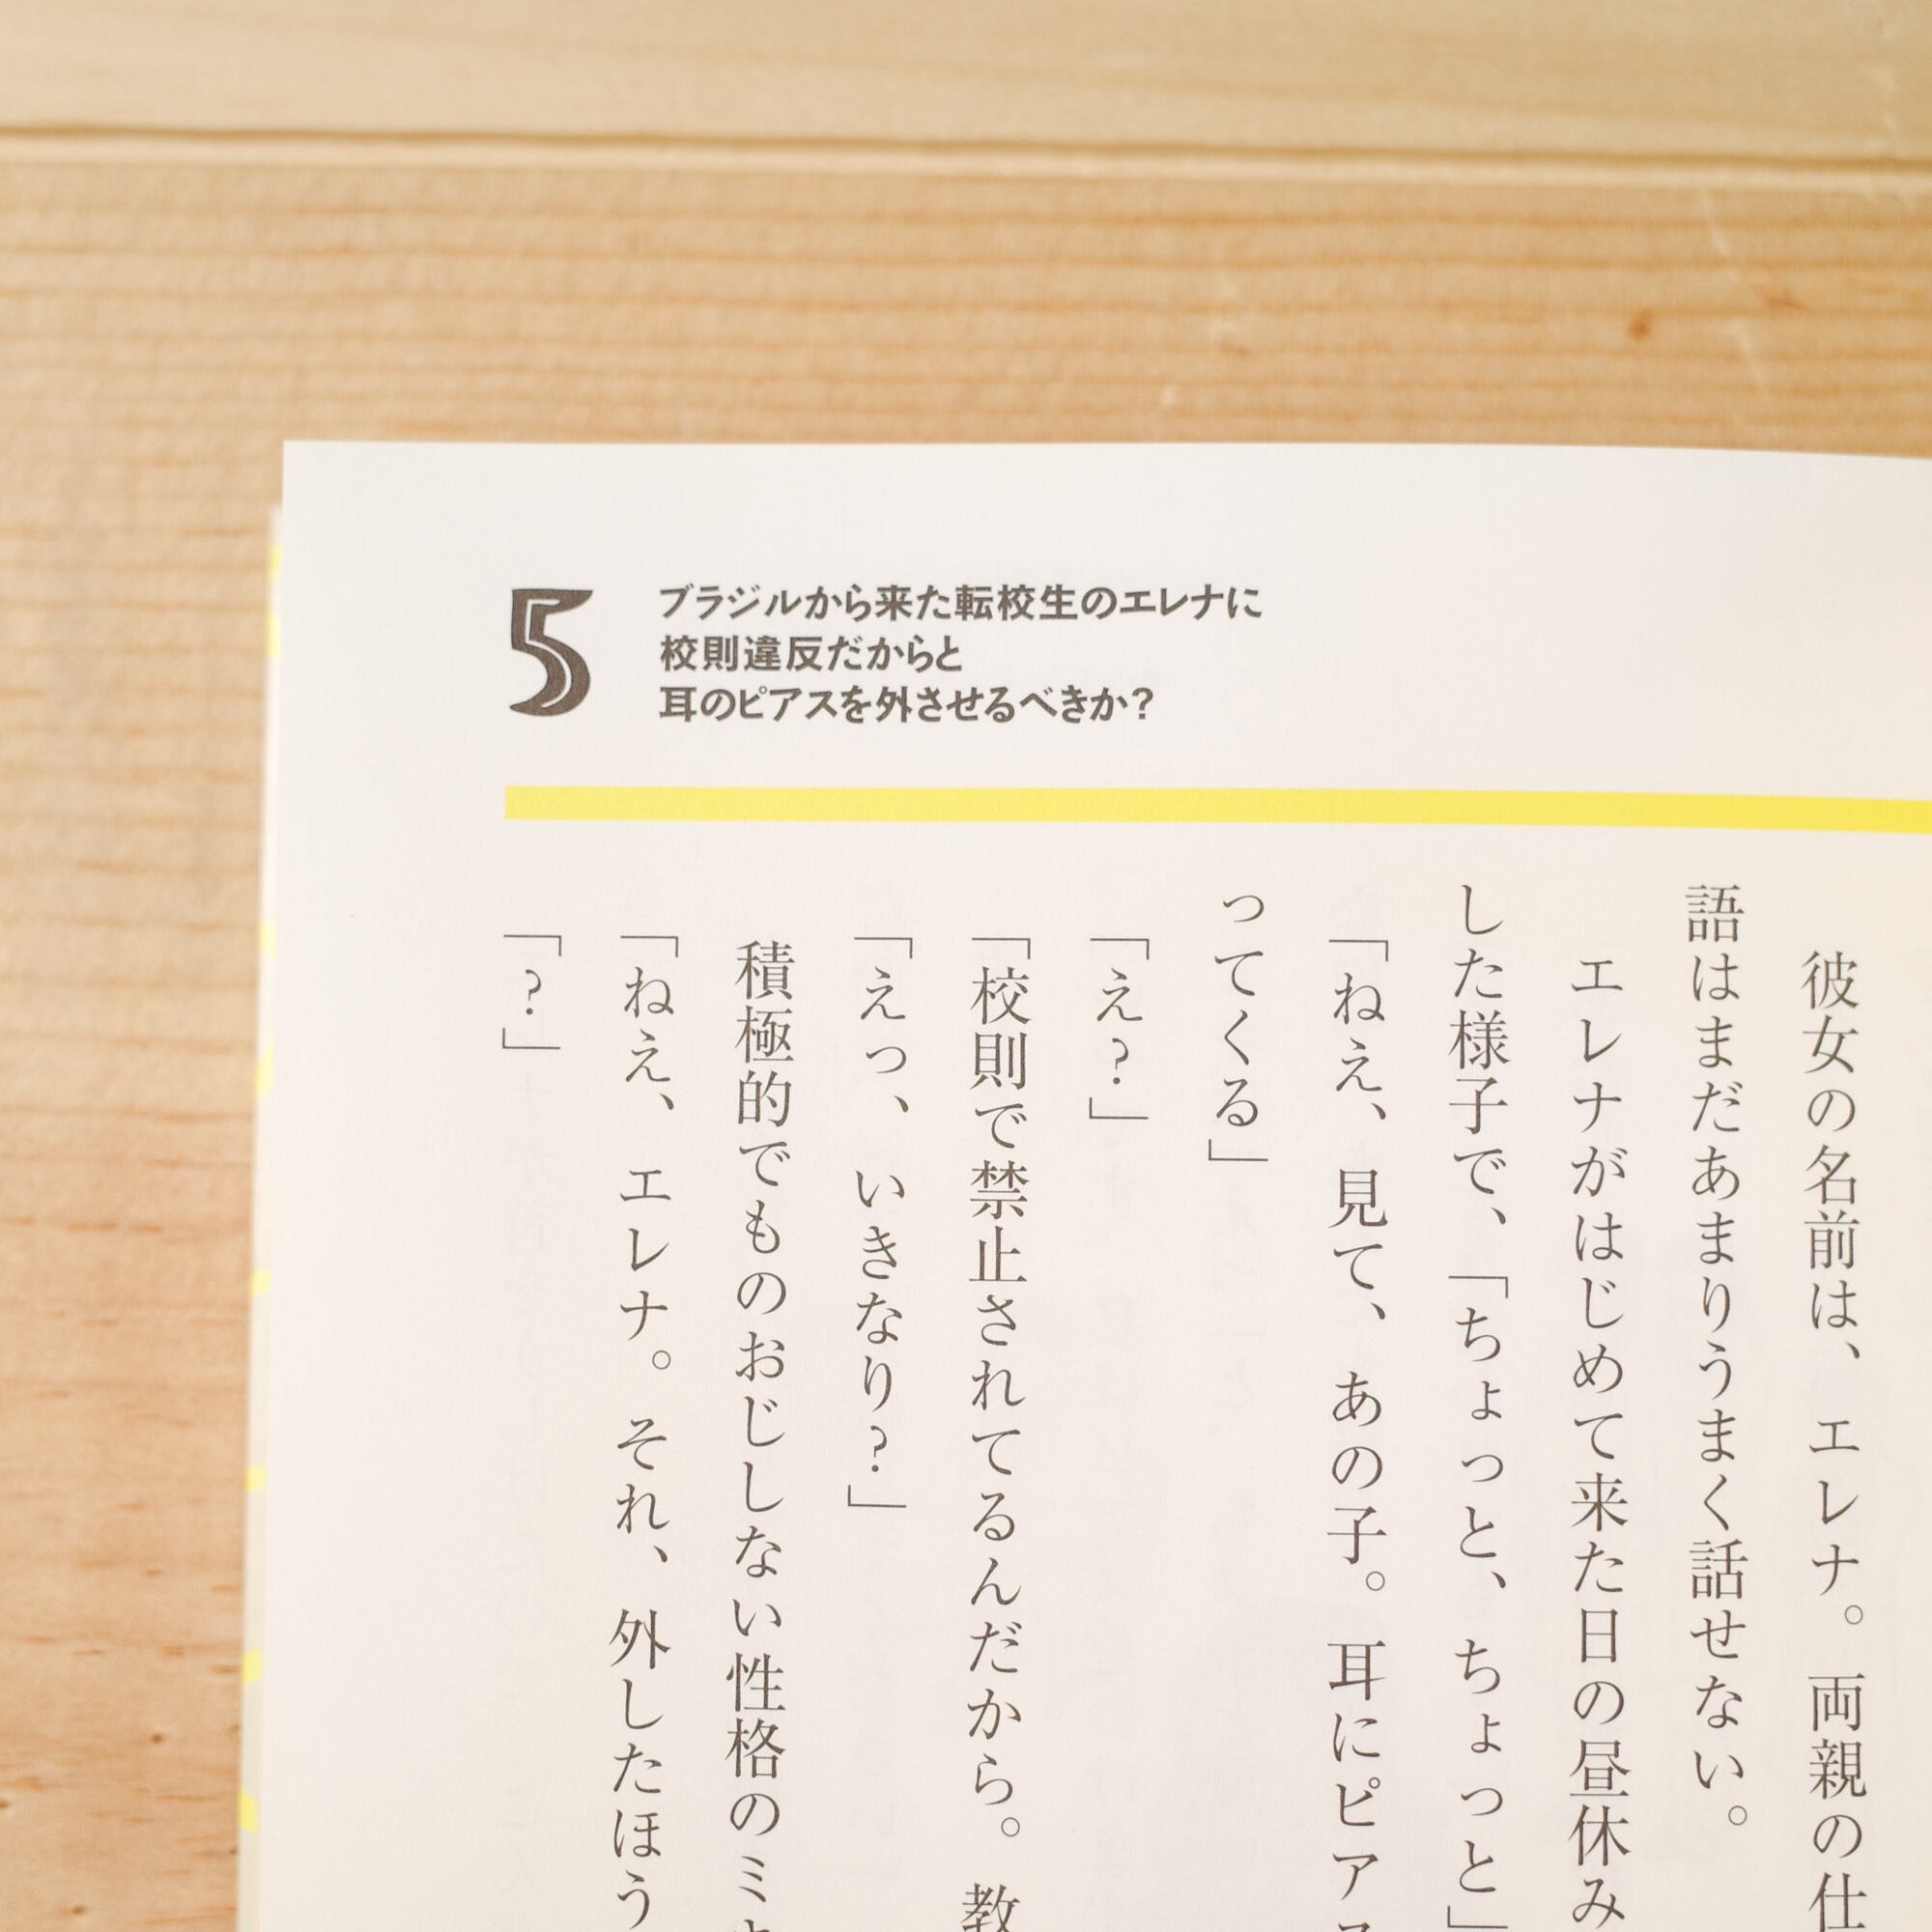 5
ブラジルから来た転校生のエレナに
校則違反だからと
耳のピアスを外させるべきか？
彼女の名前は、エレナ。両親の仕
語はまだあまりうまく話せない。
エレナがはじめて来た日の昼休み
した様子で、「ちょっと、ちょっと」
「ねえ、見て、あの子。耳にピア
ってくる」
「え？」
「校則で禁止されてるんだから。教
「えっ、いきなり？」
積極的でものおじしない性格のミ
「ねえ、エレナ。それ、外したほう
「？」